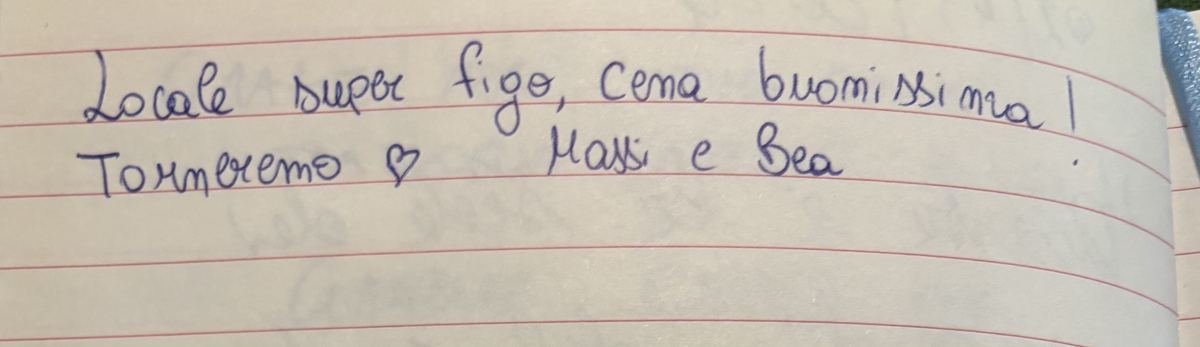 Locale super figo, cena buonissima!
Torneremo ♡ Massi e Bea